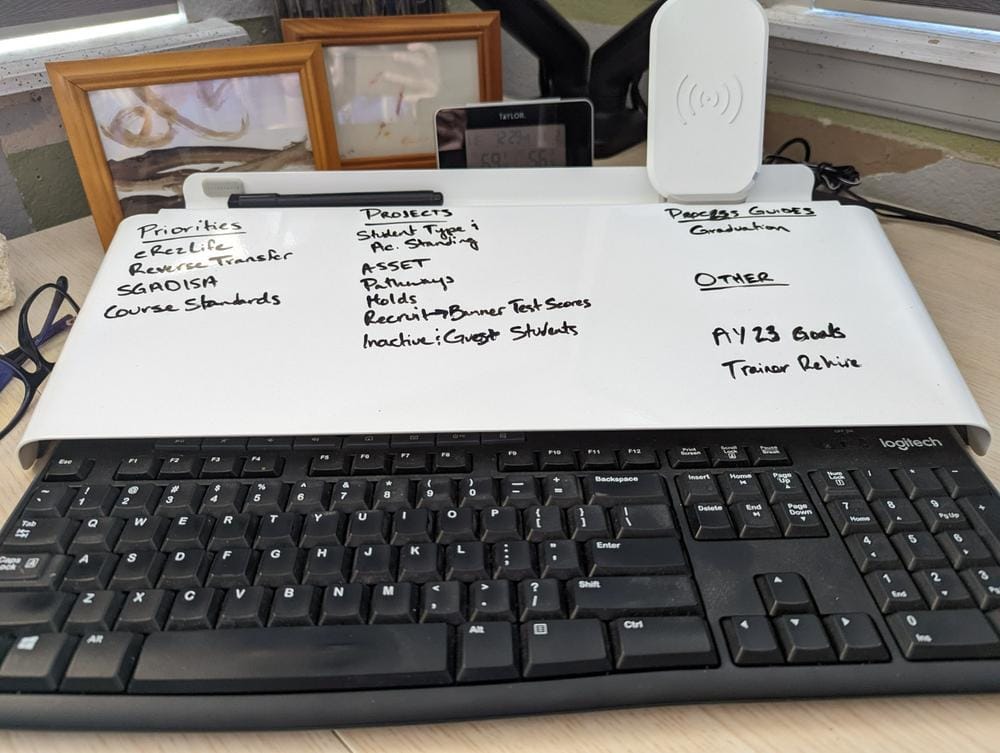 TAYLOR
Priorities
eRezLife
Reverse Transfer
SGAOISA
Course Standards
PROJECTS
Student Type &
Ac. Standing
ASSET
Pathways
Holds
Recruit→Banner Test Scores
Inactive & Guest Students
PROCESS GUIDES
Graduation
OTHER
AY23 Goals
Trainor Rehire
logitech
Esc F1 F2 F3 F4 F5 F6 F7 F8 F9 F10 F11 F12 Print Screen Scroll Lock Pause Break
~ ! 1 @ 2 # 3 $ 4 % 5 ^ 6 & 7 * 8 ( 9 ) 0 — - + = Backspace Insert Home Page Up Num Lock / * -
Tab Q W E R T Y U I O P { [ } ] | \ Delete End Page Down 7 Home 8 9 Pg Up +
Caps Lock A S D F G H J K L : ; " ' Enter 4 5 6
Z X C V B N M < , > . ? / Shift 1 End 2 3
Alt Alt Ctrl 0 Ins